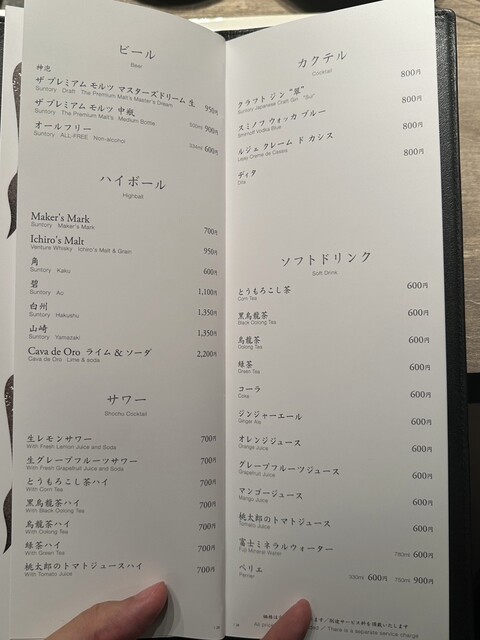 ビール
Beer
神泡
ザ プレミアム モルツ マスターズドリーム 生 950円
Suntory Draft The Premium Malt's Master's Dream
ザ プレミアム モルツ 中瓶 500ml 900円
Suntory The Premium Malt's Medium Bottle
オールフリー 334ml 600円
Suntory ALL-FREE Non-alcohol
ハイボール
Highball
Maker's Mark 700円
Suntory Maker's Mark
Ichiro's Malt 950円
Venture Whisky Ichiro's Malt & Grain
角 600円
Suntory Kaku
碧 1,100円
Suntory Ao
白州 1,350円
Suntory Hakushu
山崎 1,350円
Suntory Yamazaki
Cava de Oro ライム & ソーダ 2,200円
Cava de Oro Lime & soda
サワー
Shochu Cocktail
生レモンサワー 700円
With Fresh Lemon Juice and Soda
生グレープフルーツサワー 700円
With Fresh Grapefruit Juice and Soda
とうもろこし茶ハイ 700円
With Corn Tea
黒烏龍茶ハイ 700円
With Black Oolong Tea
烏龍茶ハイ 700円
With Oolong Tea
緑茶ハイ 700円
With Green Tea
桃太郎のトマトジュースハイ 700円
With Tomato Juice
カクテル
Cocktail
クラフト ジン "翠" 800円
Suntory Japanese Craft Gin "Sui"
スミノフ ウォッカ ブルー 800円
Smirnoff Vodka Blue
ルジェ クレーム ド カシス 800円
Lejay Crème de Cassis
ディタ 800円
Dita
ソフトドリンク
Soft Drink
とうもろこし茶 600円
Corn Tea
黒烏龍茶 600円
Black Oolong Tea
烏龍茶 600円
Oolong Tea
緑茶 600円
Green Tea
コーラ 600円
Coke
ジンジャーエール 600円
Ginger Ale
オレンジジュース 600円
Orange Juice
グレープフルーツジュース 600円
Grapefruit Juice
マンゴージュース 600円
Mango Juice
桃太郎のトマトジュース 600円
Tomato Juice
富士ミネラルウォーター 750ml 600円
Fuji Mineral Water
ペリエ 330ml 600円 750ml 900円
Perrier
価格は ます／別途サービス料を頂戴いたします
All prices There is a separate service charge.